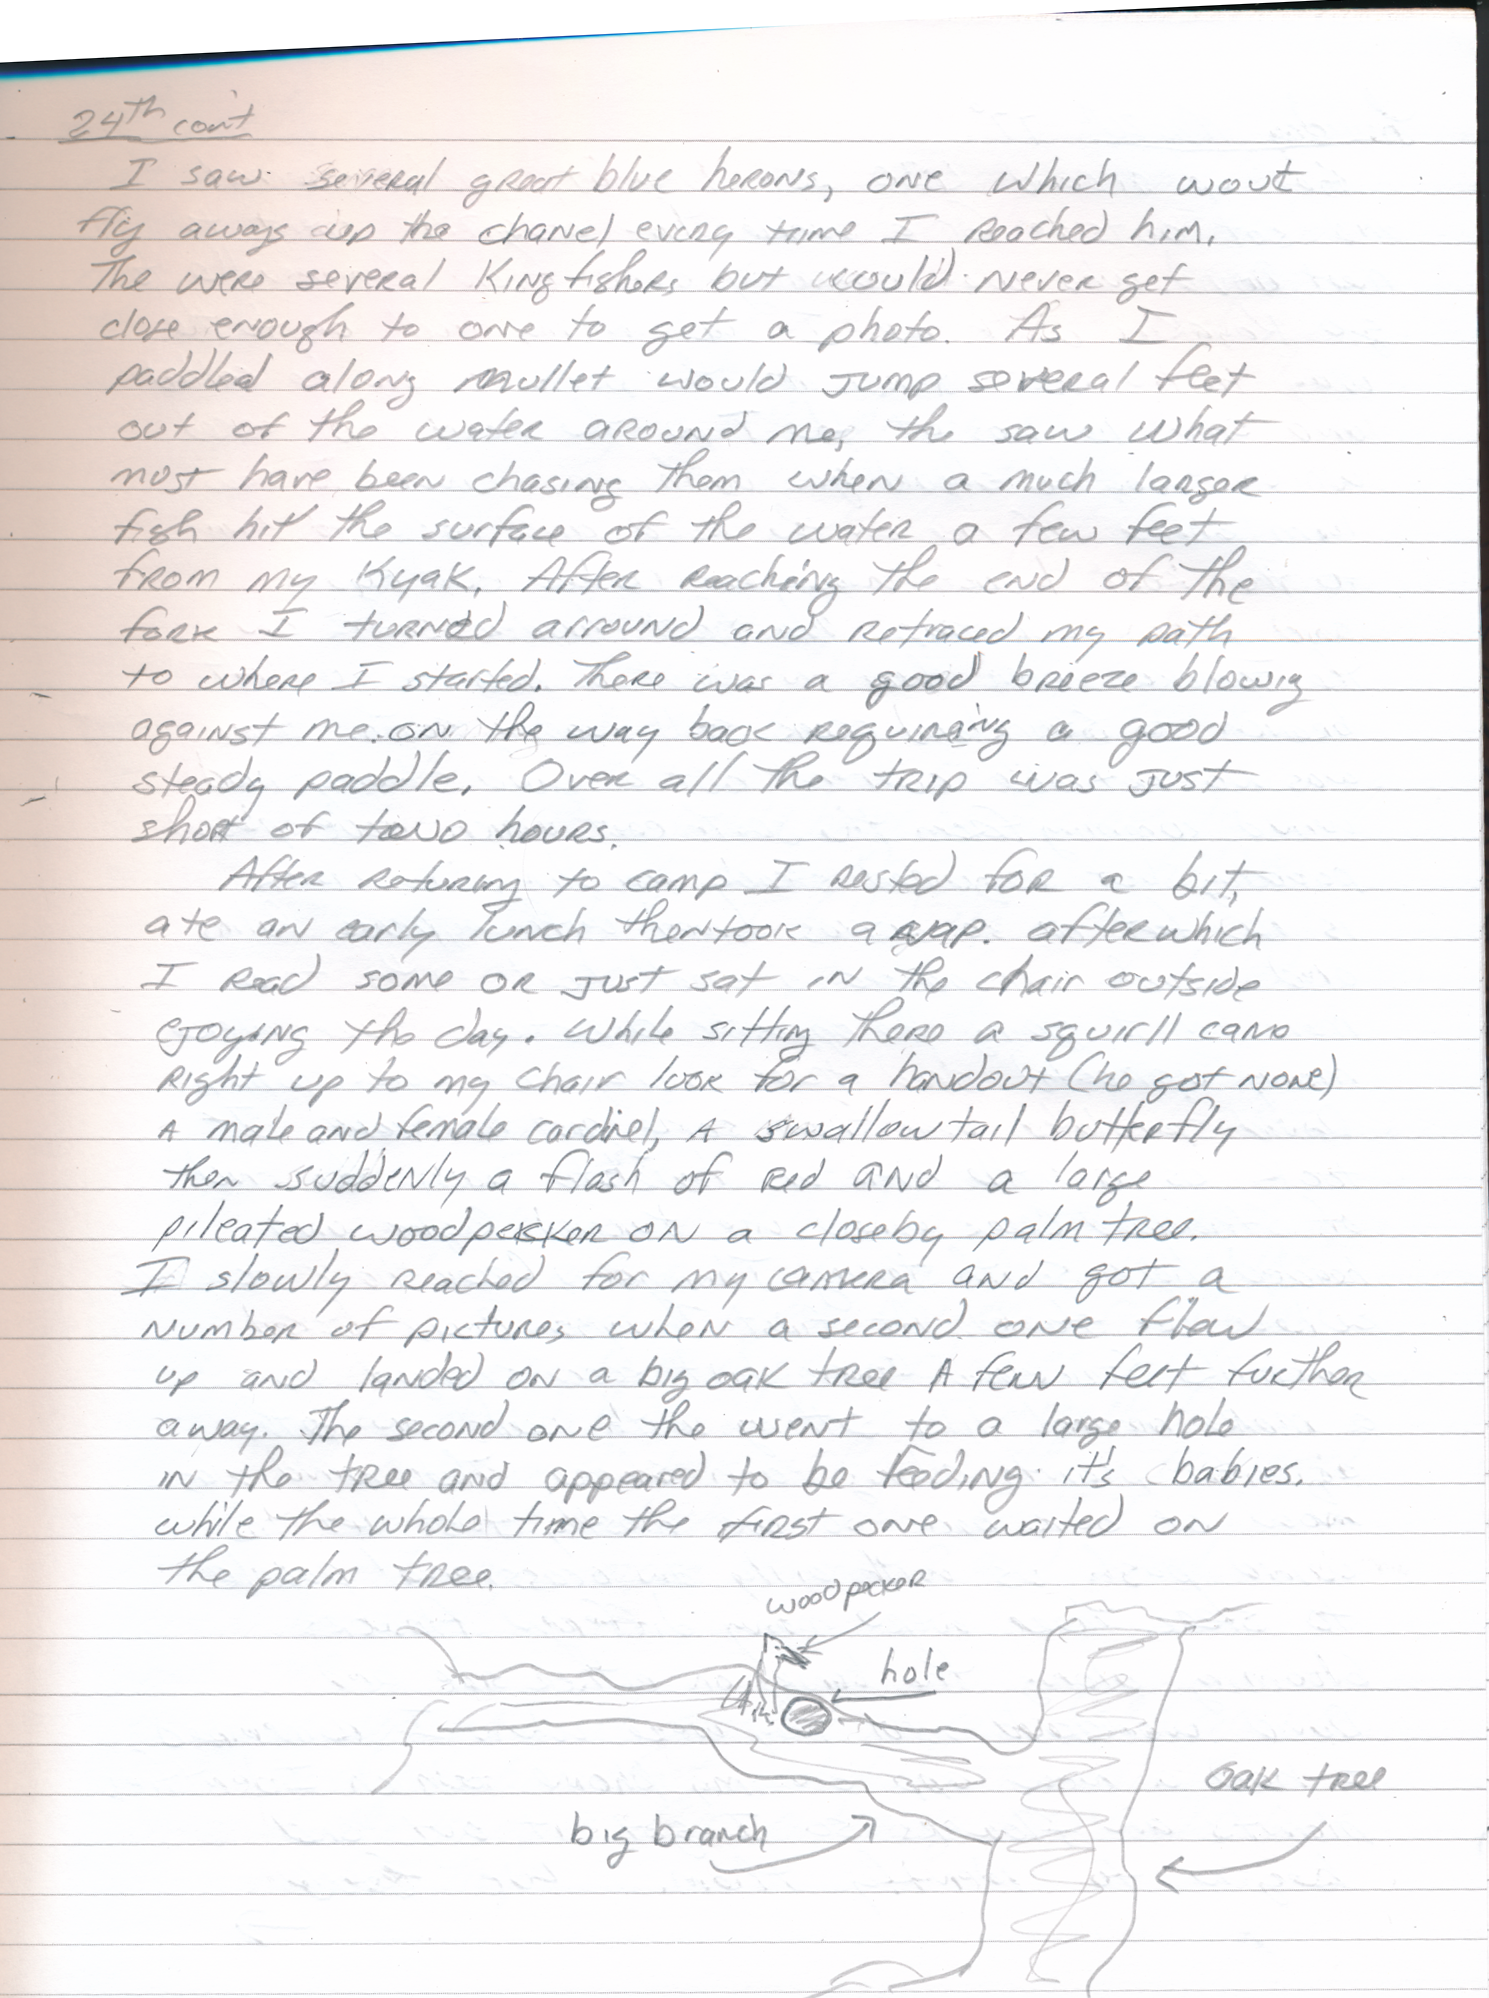 24th con't
I saw several great blue herons, one which wout
fly aways up the chanel every time I reached him.
The were several Kingfishers but would never get
close enough to one to get a photo. As I
paddled along mullet would jump several feet
out of the water around me, the saw what
most have been chasing them when a much larger
fish hit the surface of the water a few feet
from my Kyak. After reaching the end of the
fork I turned arround and retraced my path
to where I started. There was a good breeze blowig
against me on the way back requireing a good
steady paddle. Over all the trip was just
short of two hours.
After returing to camp I rested for a bit,
ate an early lunch then took a nap. after which
I read some or just sat in the chair outside
ejoying the day. While sitting there a squirll came
right up to my chair look for a handout (he got none)
A male and female cardinel, A swallowtail butterfly
then suddenly a flash of red and a large
pileated woodpecker on a closeby palm tree.
I slowly reached for my camera and got a
number of pictures when a second one flew
up and landed on a big oak tree A few feet further
away. The second one the went to a large hole
in the tree and appeared to be feeding it's babies.
while the whole time the first one waited on
the palm tree.
woodpecker
hole
oak tree
big branch